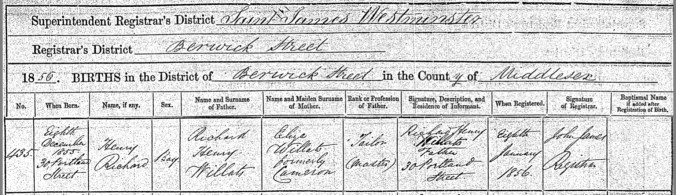 Superintendent Registrar's District Saint James Westminster
Registrar's District Berwick Street
1856. BIRTHS in the District of Berwick Street in the County of Middlesex
No. When Born. Name, if any. Sex. Name and Surname of Father. Name and Maiden Surname of Mother. Rank or Profession of Father. Signature, Description, and Residence of Informant. When Registered. Signature of Registrar. Baptismal Name if added after Registration of Birth.
435 Eighth December 1855 30 Portland Street Henry Richard Boy Richard Henry Willats Eliza Willats formerly Cameron Tailor (master) Richard Henry Willats Father 30 Portland Street Eighth January 1856. John James Registrar